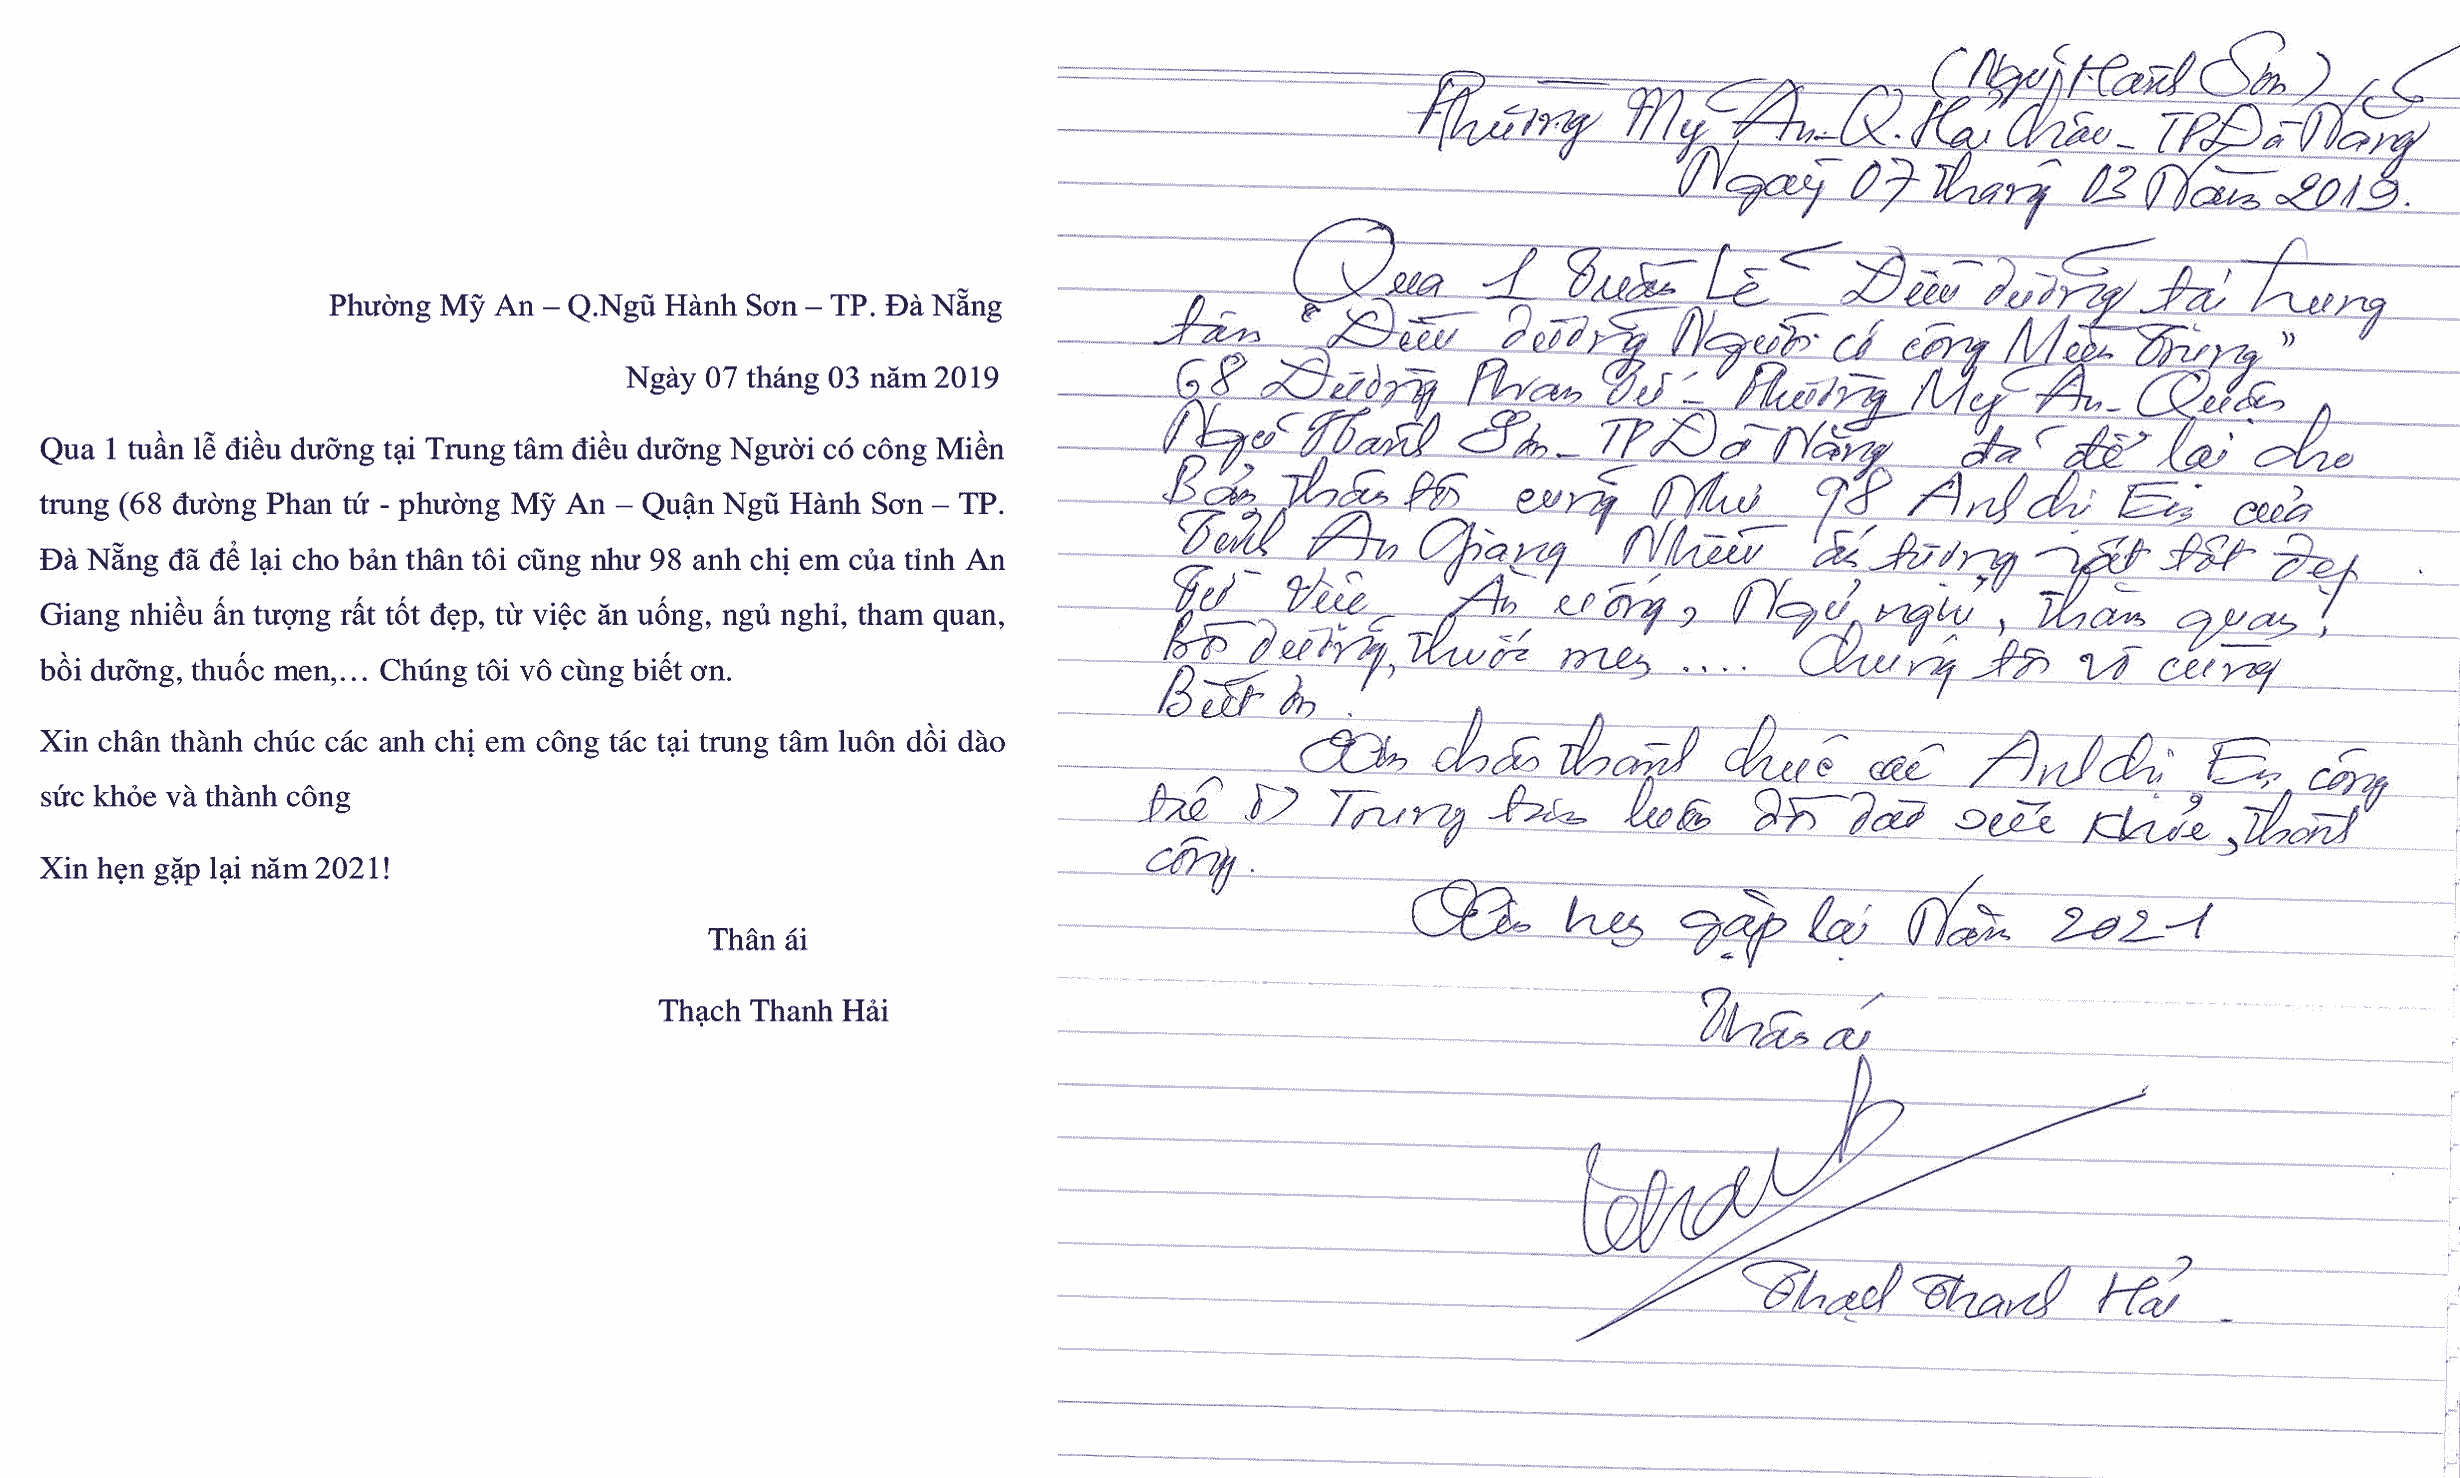 Phường Mỹ An – Q.Ngũ Hành Sơn – TP. Đà Nẵng
Ngày 07 tháng 03 năm 2019
Qua 1 tuần lễ điều dưỡng tại Trung tâm điều dưỡng Người có công Miền
trung (68 đường Phan tứ - phường Mỹ An – Quận Ngũ Hành Sơn – TP.
Đà Nẵng đã để lại cho bản thân tôi cũng như 98 anh chị em của tỉnh An
Giang nhiều ấn tượng rất tốt đẹp, từ việc ăn uống, ngủ nghỉ, tham quan,
bồi dưỡng, thuốc men,… Chúng tôi vô cùng biết ơn.
Xin chân thành chúc các anh chị em công tác tại trung tâm luôn dồi dào
sức khỏe và thành công
Xin hẹn gặp lại năm 2021!
Thân ái
Thạch Thanh Hải
(Ngũ Hành Sơn)
Phường Mỹ An - Q. Hải Châu - TP Đà Nẵng
Ngày 07 tháng 03 Năm 2019.
Qua 1 Tuần Lễ Điều dưỡng tại Trung
tâm "Điều dưỡng Người có công Miền Trung"
68 Đường Phan Tứ - Phường Mỹ An - Quận
Ngũ Hành Sơn - TP Đà Nẵng đã để lại cho
Bản thân tôi cũng Như 98 Anh chị Em của
Tỉnh An Giang Nhiều ấn tượng rất tốt đẹp
Từ Việc Ăn uống, Ngủ nghỉ, Thăm quan,
bồi dưỡng, thuốc men .... Chúng tôi vô cùng
Biết ơn.
Xin chân thành chúc các Anh chị Em công
tác ở Trung tâm luôn dồi dào sức khỏe, thành
công.
Xin hẹn gặp lại Năm 2021
Thân ái
Thạch Thanh Hải